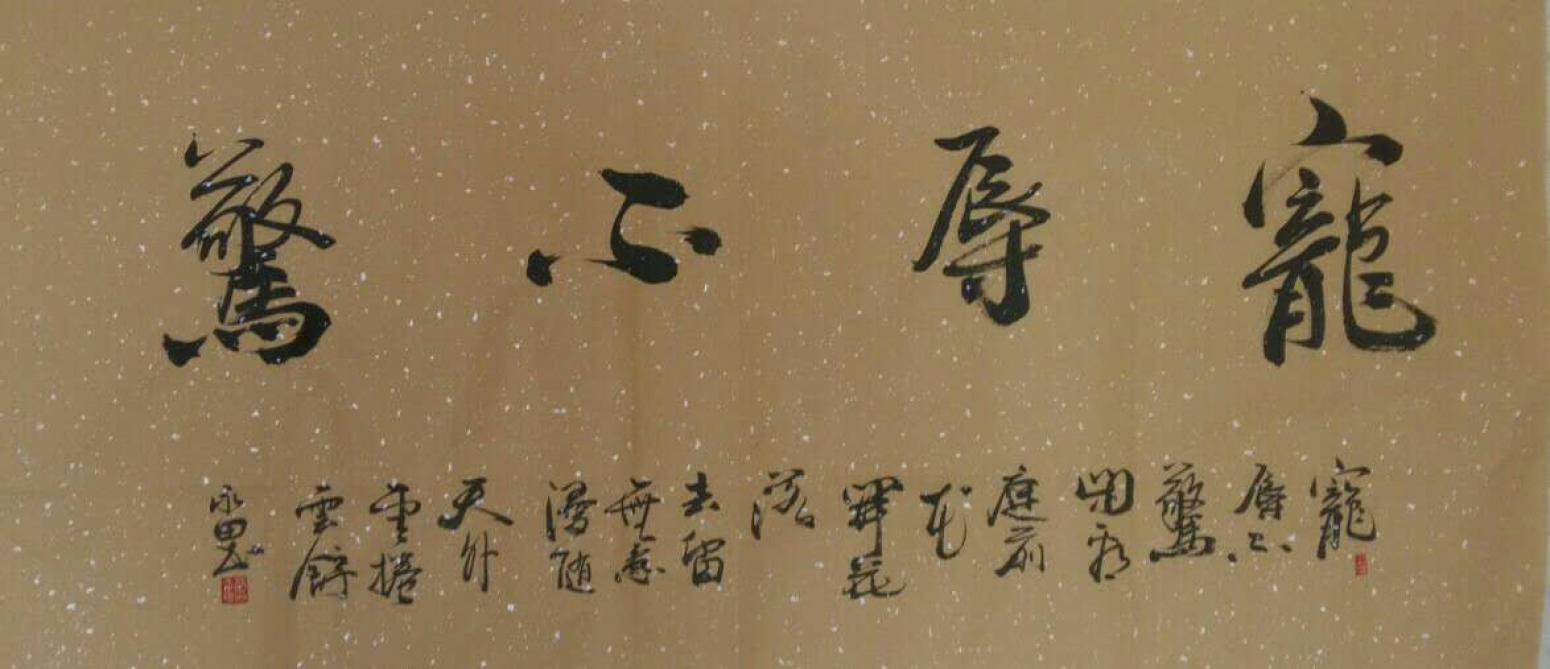 寵辱不驚
寵
辱不
驚
閒看
庭前
花
開花
落
去留
無意
漫随
天外
雲捲
雲舒
永田书